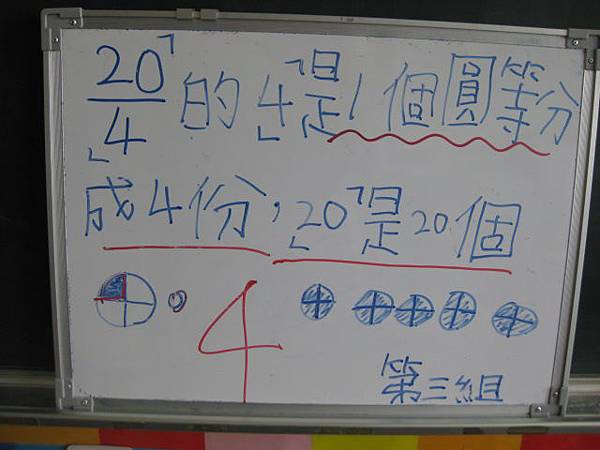 「20/4」的「4」是1個圓等分
成4份，「20」是20個
4
第三組